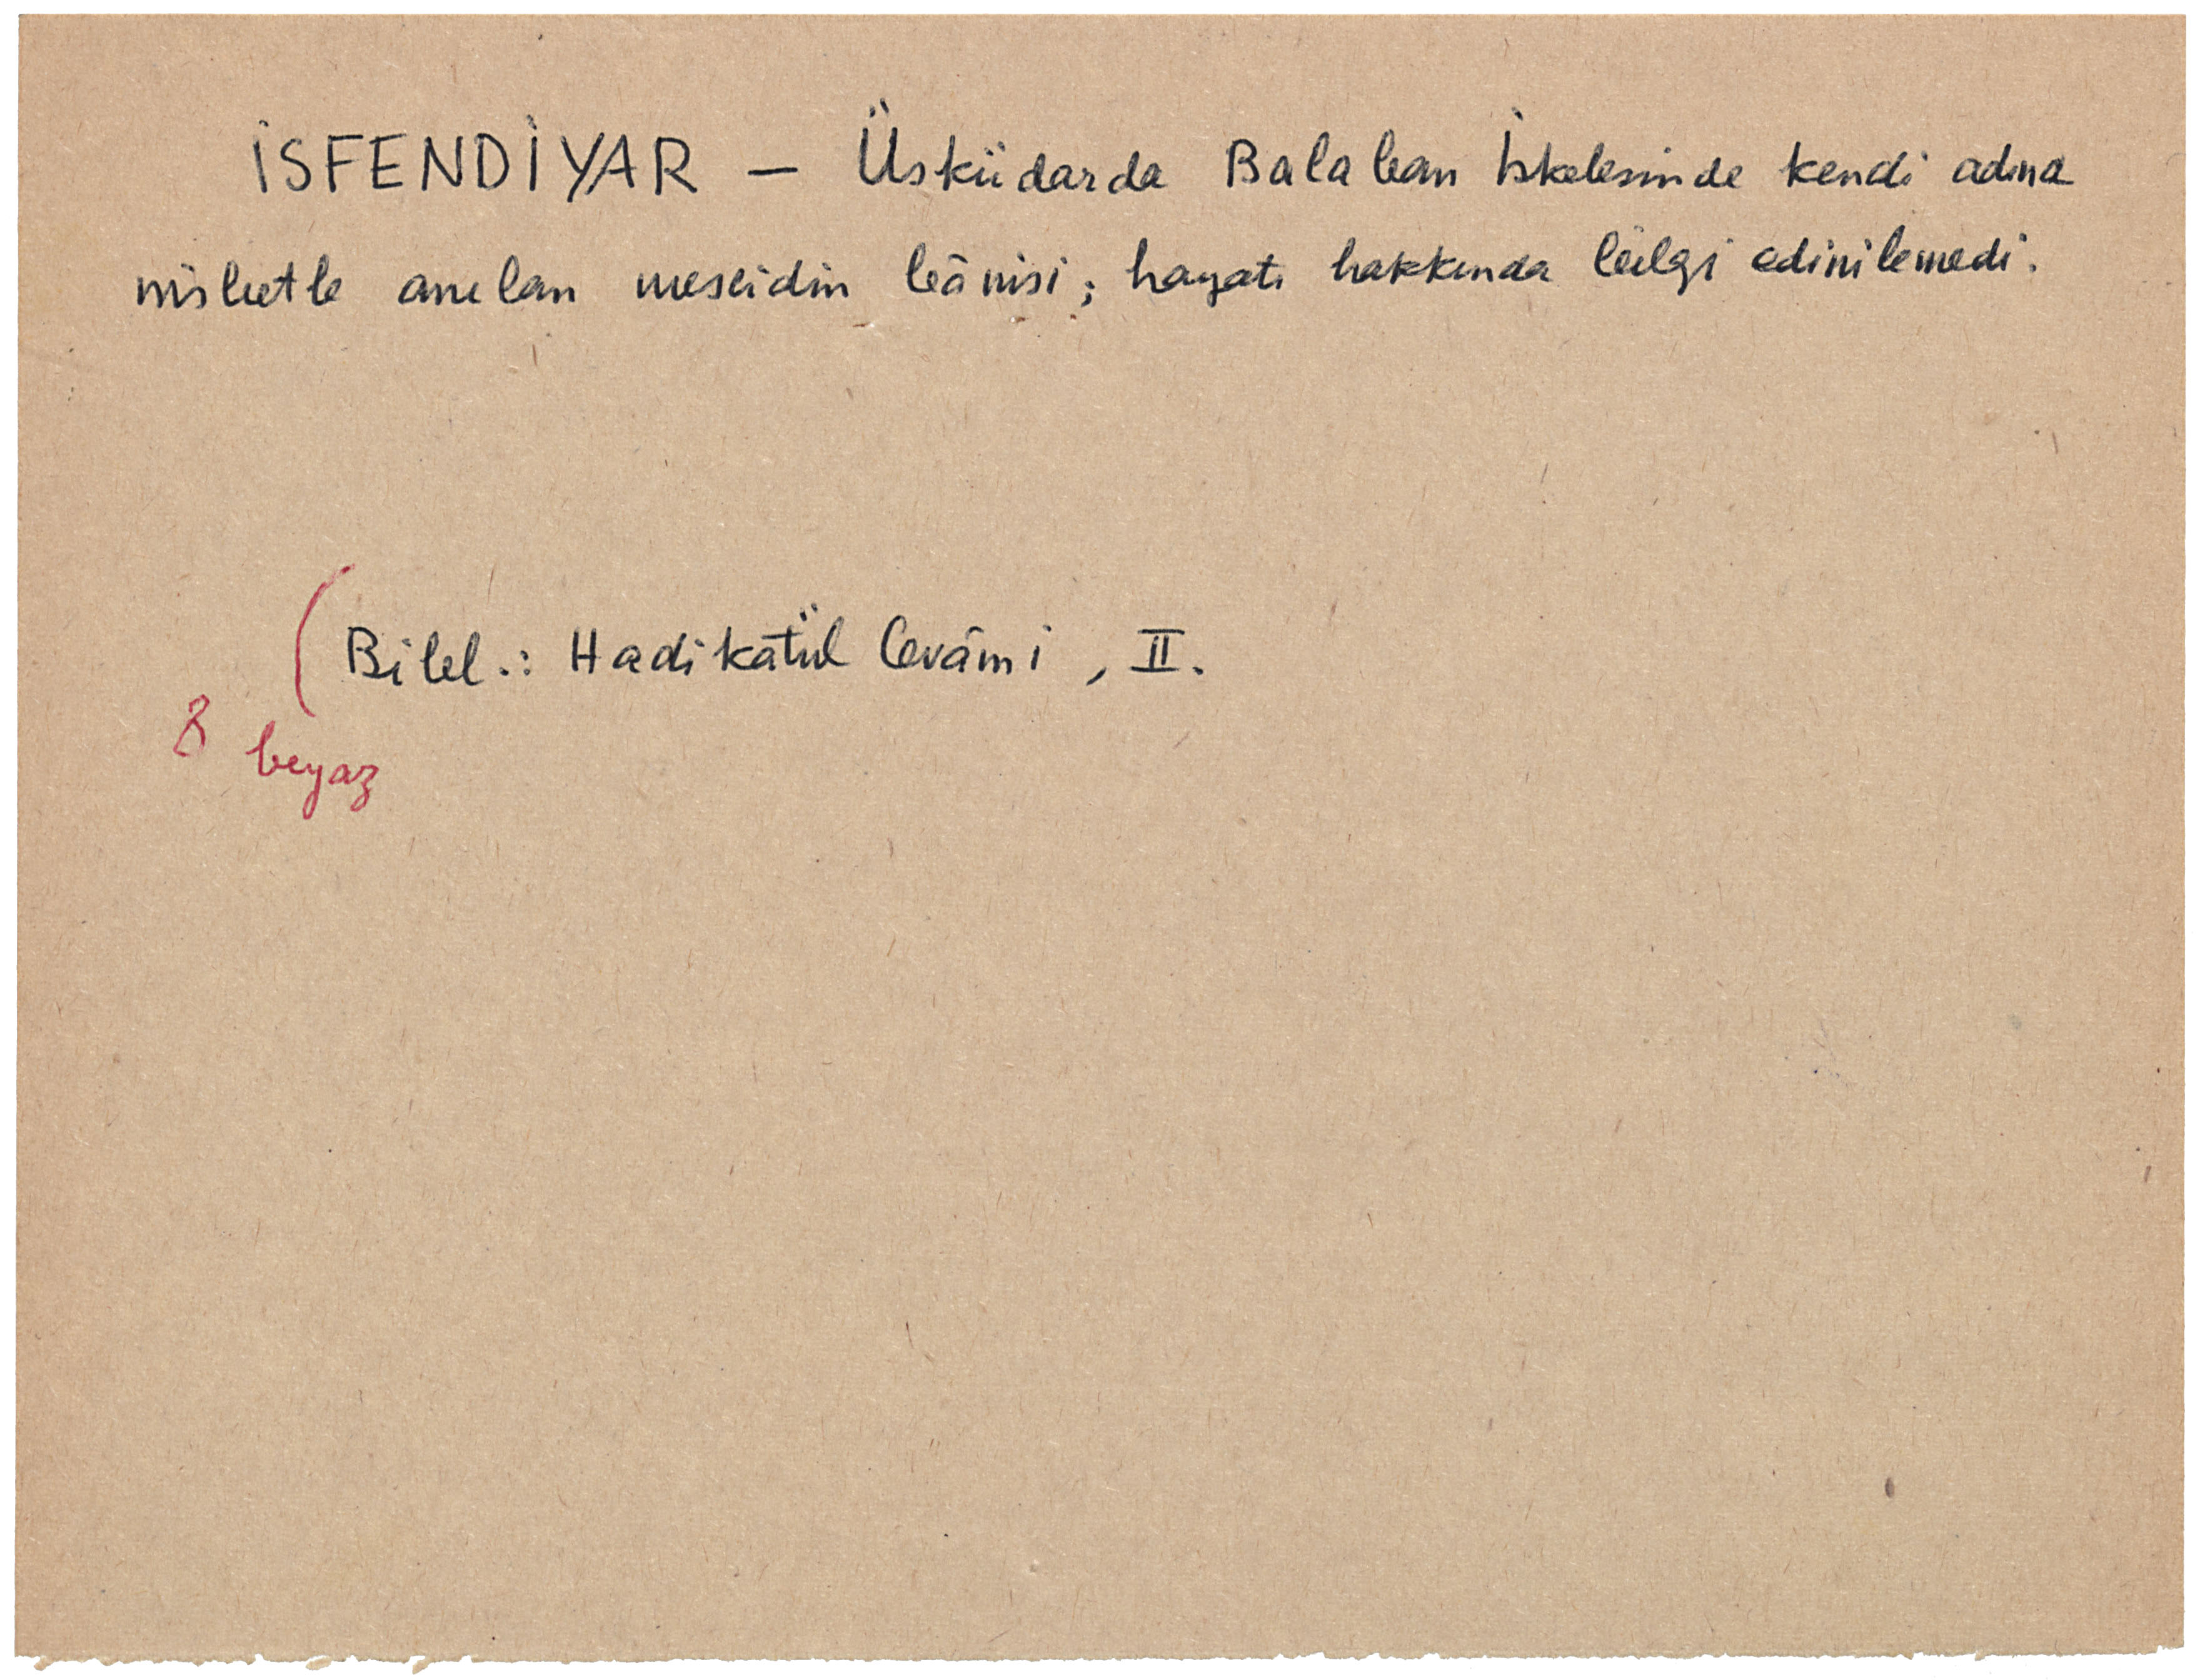 İSFENDİYAR — Üsküdarda Balaban İskelesinde kendi adına
nisbetle anılan mescidin bânisi; hayatı hakkında bilgi edinilemedi.
(Bibl.: Hadikatül Cevâmi, II.
8 beyaz